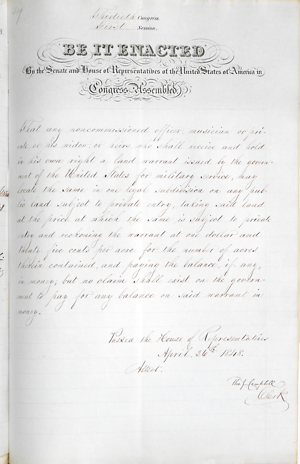 Congress
First Session
BE IT ENACTED
By the Senate and House of Representatives of the United States of America in
Congress Assembled,
That any noncommissioned officer musician or pri-
vate, or his widow or heirs who shall receive and hold
in his own right a land warrant issued by the govern-
ment of the United States for military service, may
locate the same in one legal subdivision on any pub-
lic land subject to private entry, taking said land
at the price at which the same is subject to private
entry and reckoning the warrant at one dollar and
twenty five cents per acre for the number of acres
therein contained, and paying the balance if any,
in money, but no claim shall exist on the govern-
ment to pay for any balance on said warrant in
money.
Passed the House of Representatives
April 26th 1848.
Attest.
Tho. J. Campbell
Clerk